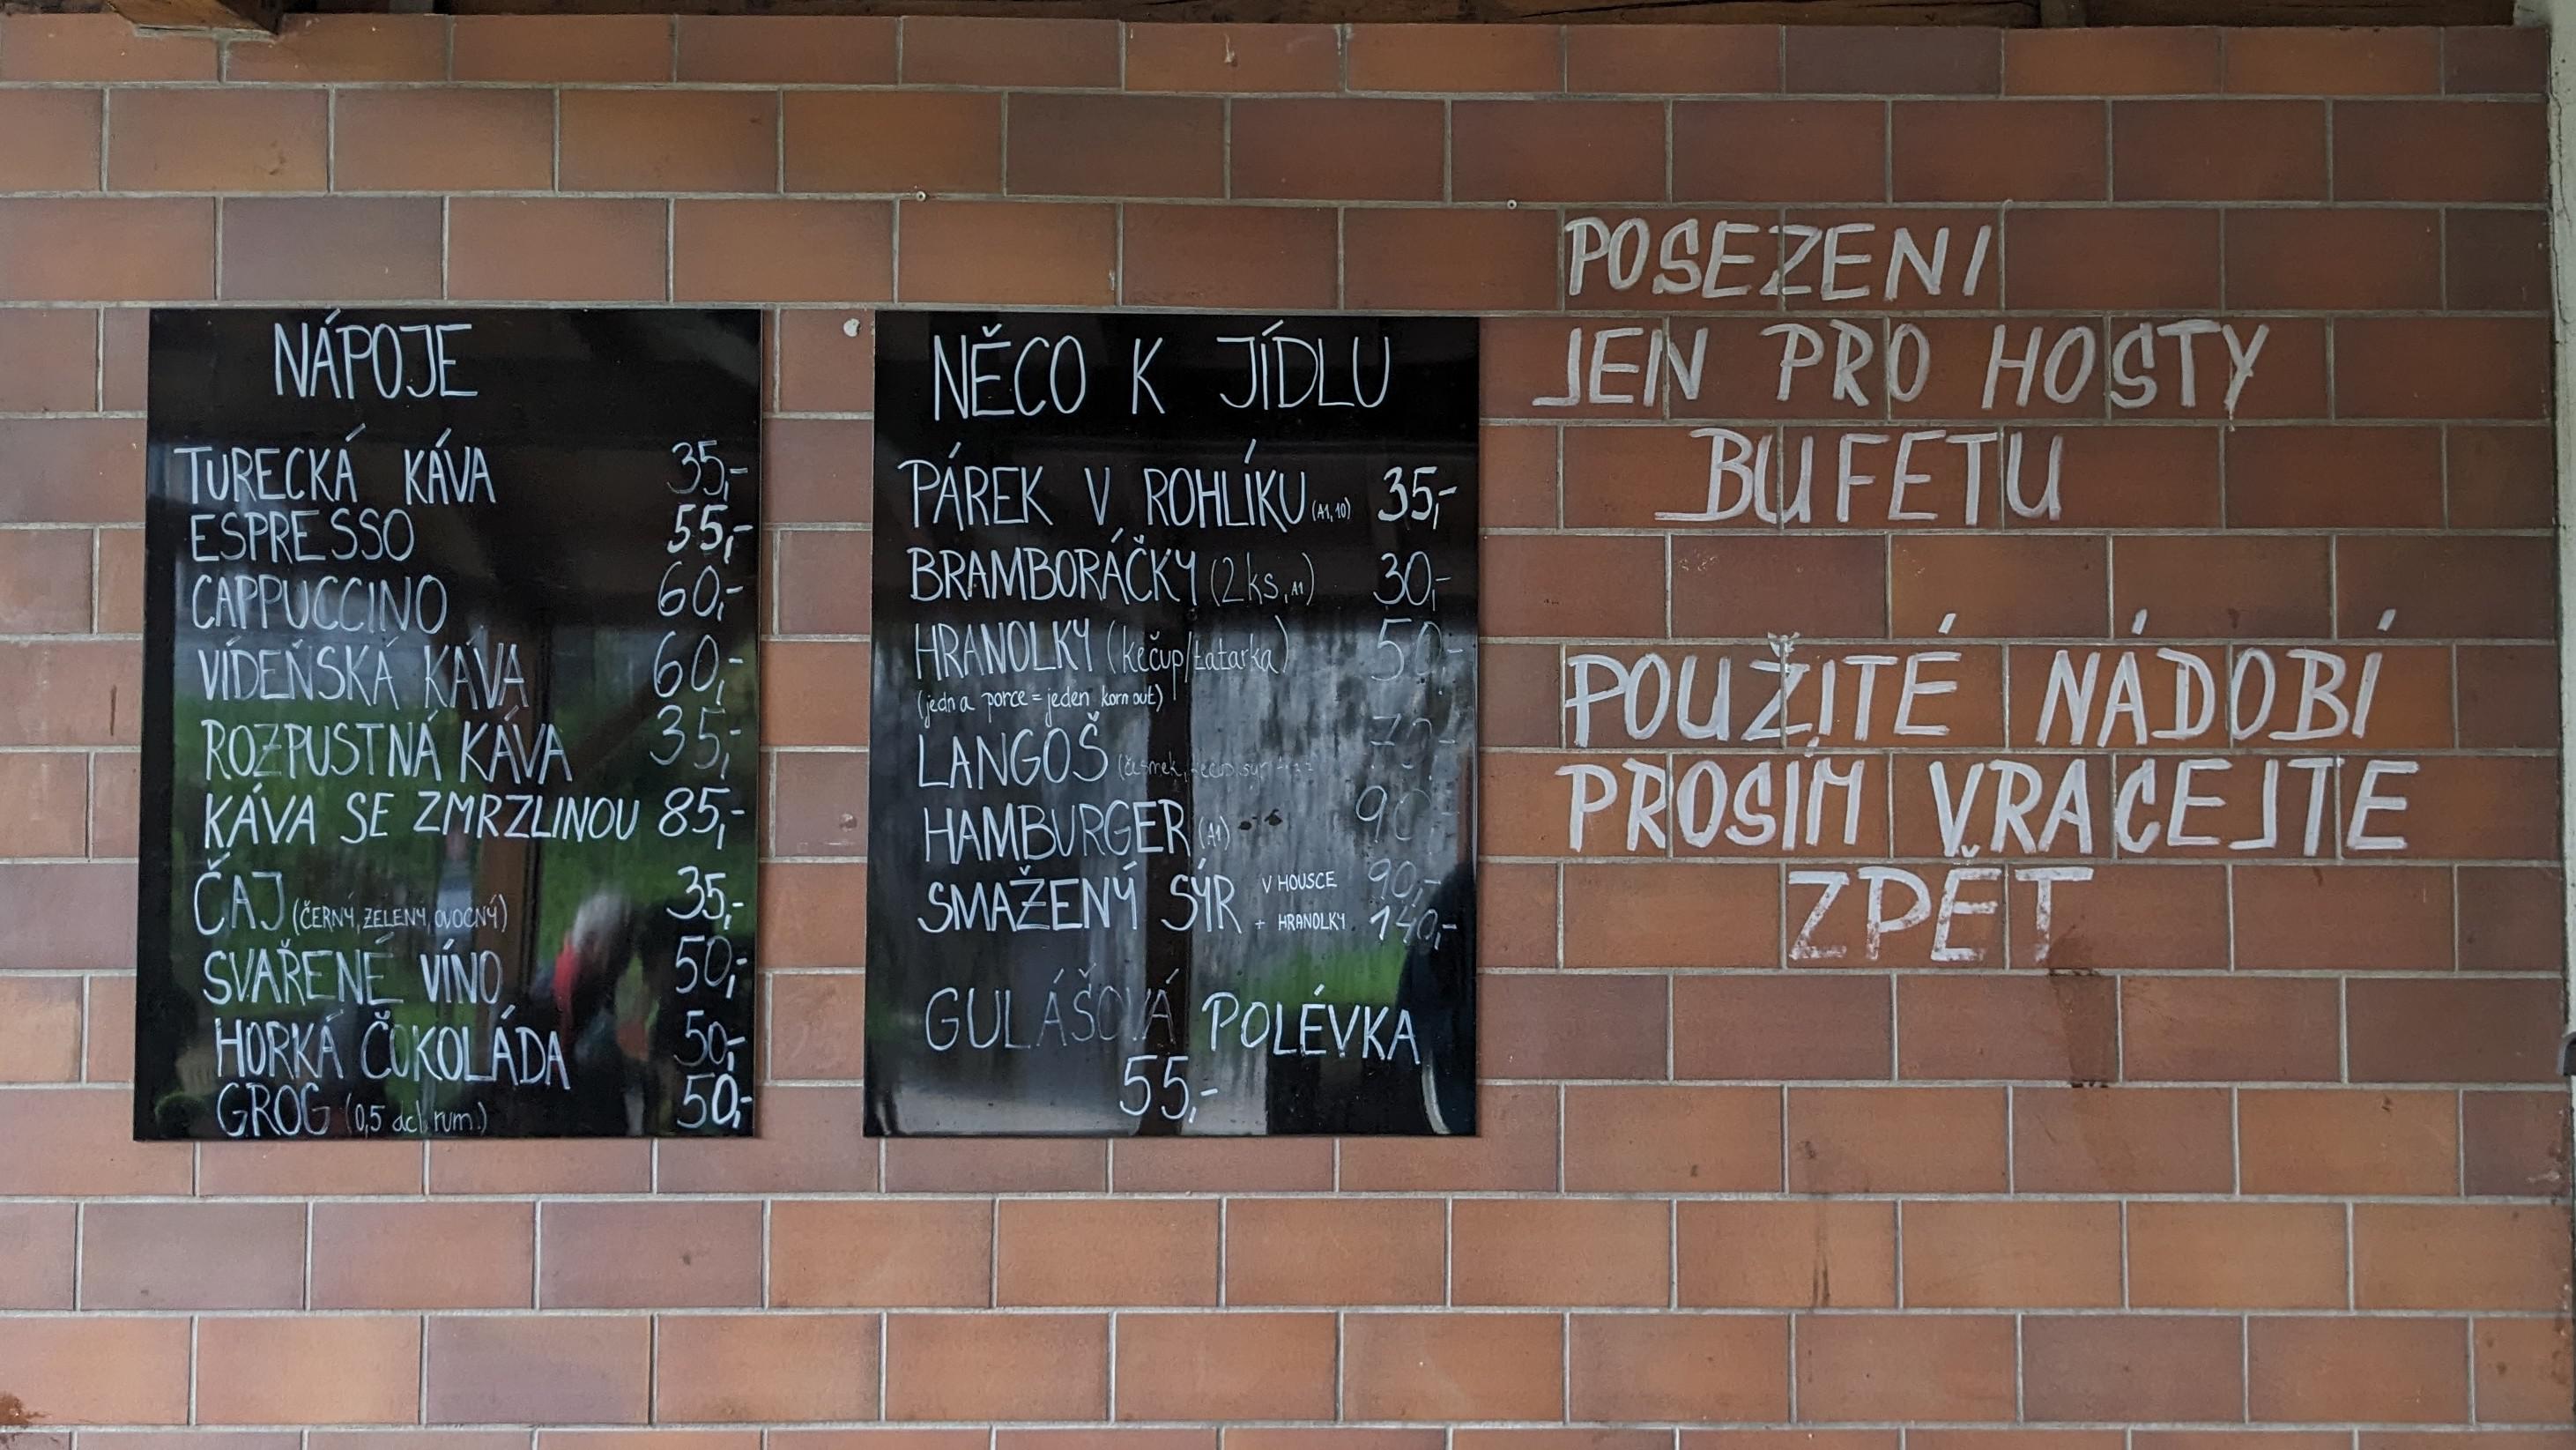 NÁPOJE
TURECKÁ KÁVA 35,-
ESPRESSO 55,-
CAPPUCCINO 60,-
VÍDEŇSKÁ KÁVA 60,-
ROZPUSTNÁ KÁVA 35,-
KÁVA SE ZMRZLINOU 85,-
ČAJ (ČERNÝ, ZELENÝ, OVOCNÝ) 35,-
SVAŘENÉ VÍNO 50,-
HORKÁ ČOKOLÁDA 50,-
GROG (0,5 dcl rum) 50,-
NĚCO K JÍDLU
PÁREK V ROHLÍKU (A1, 10) 35,-
BRAMBORÁČKY (2 ks, A1) 30,-
HRANOLKY (kečup/tatarka) 50,-
(jedna porce = jeden kornout)
LANGOŠ (česnek, kečup, sýr 70,-
HAMBURGER (A1) 90,-
SMAŽENÝ SÝR V HOUSCE 90,-
+ HRANOLKY 140,-
GULÁŠOVÁ POLÉVKA
55,-
POSEZENI
JEN PRO HOSTY
BUFETU
POUŽITÉ NÁDOBÍ
PROSÍM VRACEJTE
ZPĚT